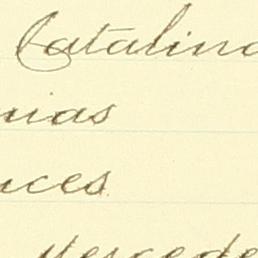 Catalina
uias
uces
Mercede